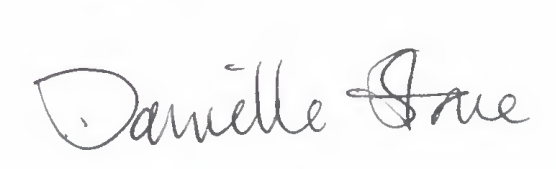 Danielle Stone